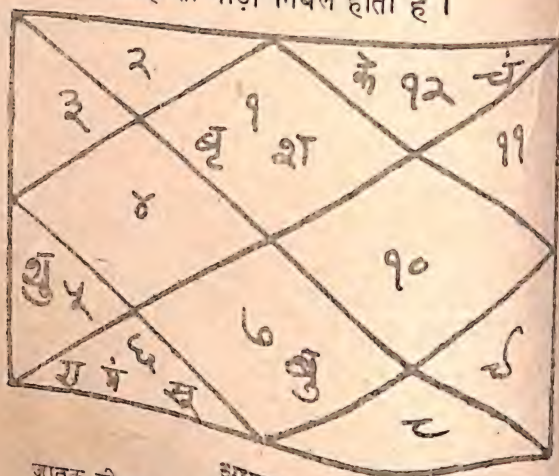 निर्बल होता है ।
२
के १२ चं
३
१
बृ श
११
४
१०
शु ५
७
बु
६
रा मं सू
९
८
जातक